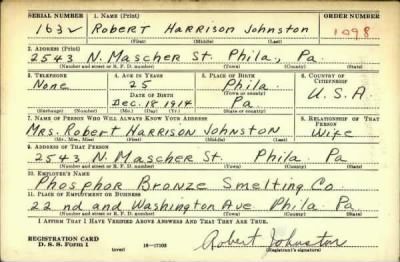 SERIAL NUMBER 1. NAME (Print) ORDER NUMBER
163 Robert Harrison Johnston 1098
(First) (Middle) (Last)
2. ADDRESS (Print)
2543 N. Mascher St. Phila., Pa.
(Number and street or R. F. D. number) (Town) (County) (State)
3. TELEPHONE 4. AGE IN YEARS 5. PLACE OF BIRTH 6. COUNTRY OF CITIZENSHIP
None 25 Phila. U.S.A.
DATE OF BIRTH (Town or county)
Dec. 18, 1914 Pa.
(Exchange) (Number) (Mo.) (Day) (Yr.) (State or country)
7. NAME OF PERSON WHO WILL ALWAYS KNOW YOUR ADDRESS 8. RELATIONSHIP OF THAT PERSON
Mrs. Robert Harrison Johnston Wife
(Mr., Mrs., Miss) (First) (Middle) (Last)
9. ADDRESS OF THAT PERSON
2543 N. Mascher St. Phila. Pa
(Number and street or R. F. D. number) (Town) (County) (State)
10. EMPLOYER'S NAME
Phosphor Bronze Smelting Co.
11. PLACE OF EMPLOYMENT OR BUSINESS
22nd and Washington Ave Phila. Pa
(Number and street or R. F. D. number) (Town) (County) (State)
I AFFIRM THAT I HAVE VERIFIED ABOVE ANSWERS AND THAT THEY ARE TRUE.
REGISTRATION CARD
D. S. S. Form 1 (over) 16-17105 Robert Johnston
(Registrant's signature)